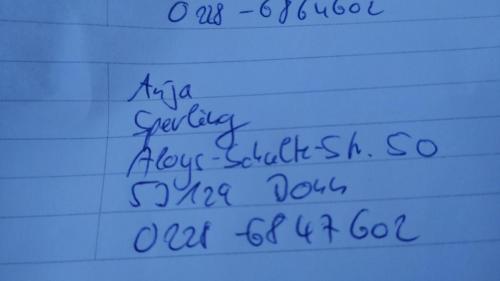 0228-6864602
Anja
Sperling
Aloys-Schulte-Str. 50
53129 Bonn
0228-6847602